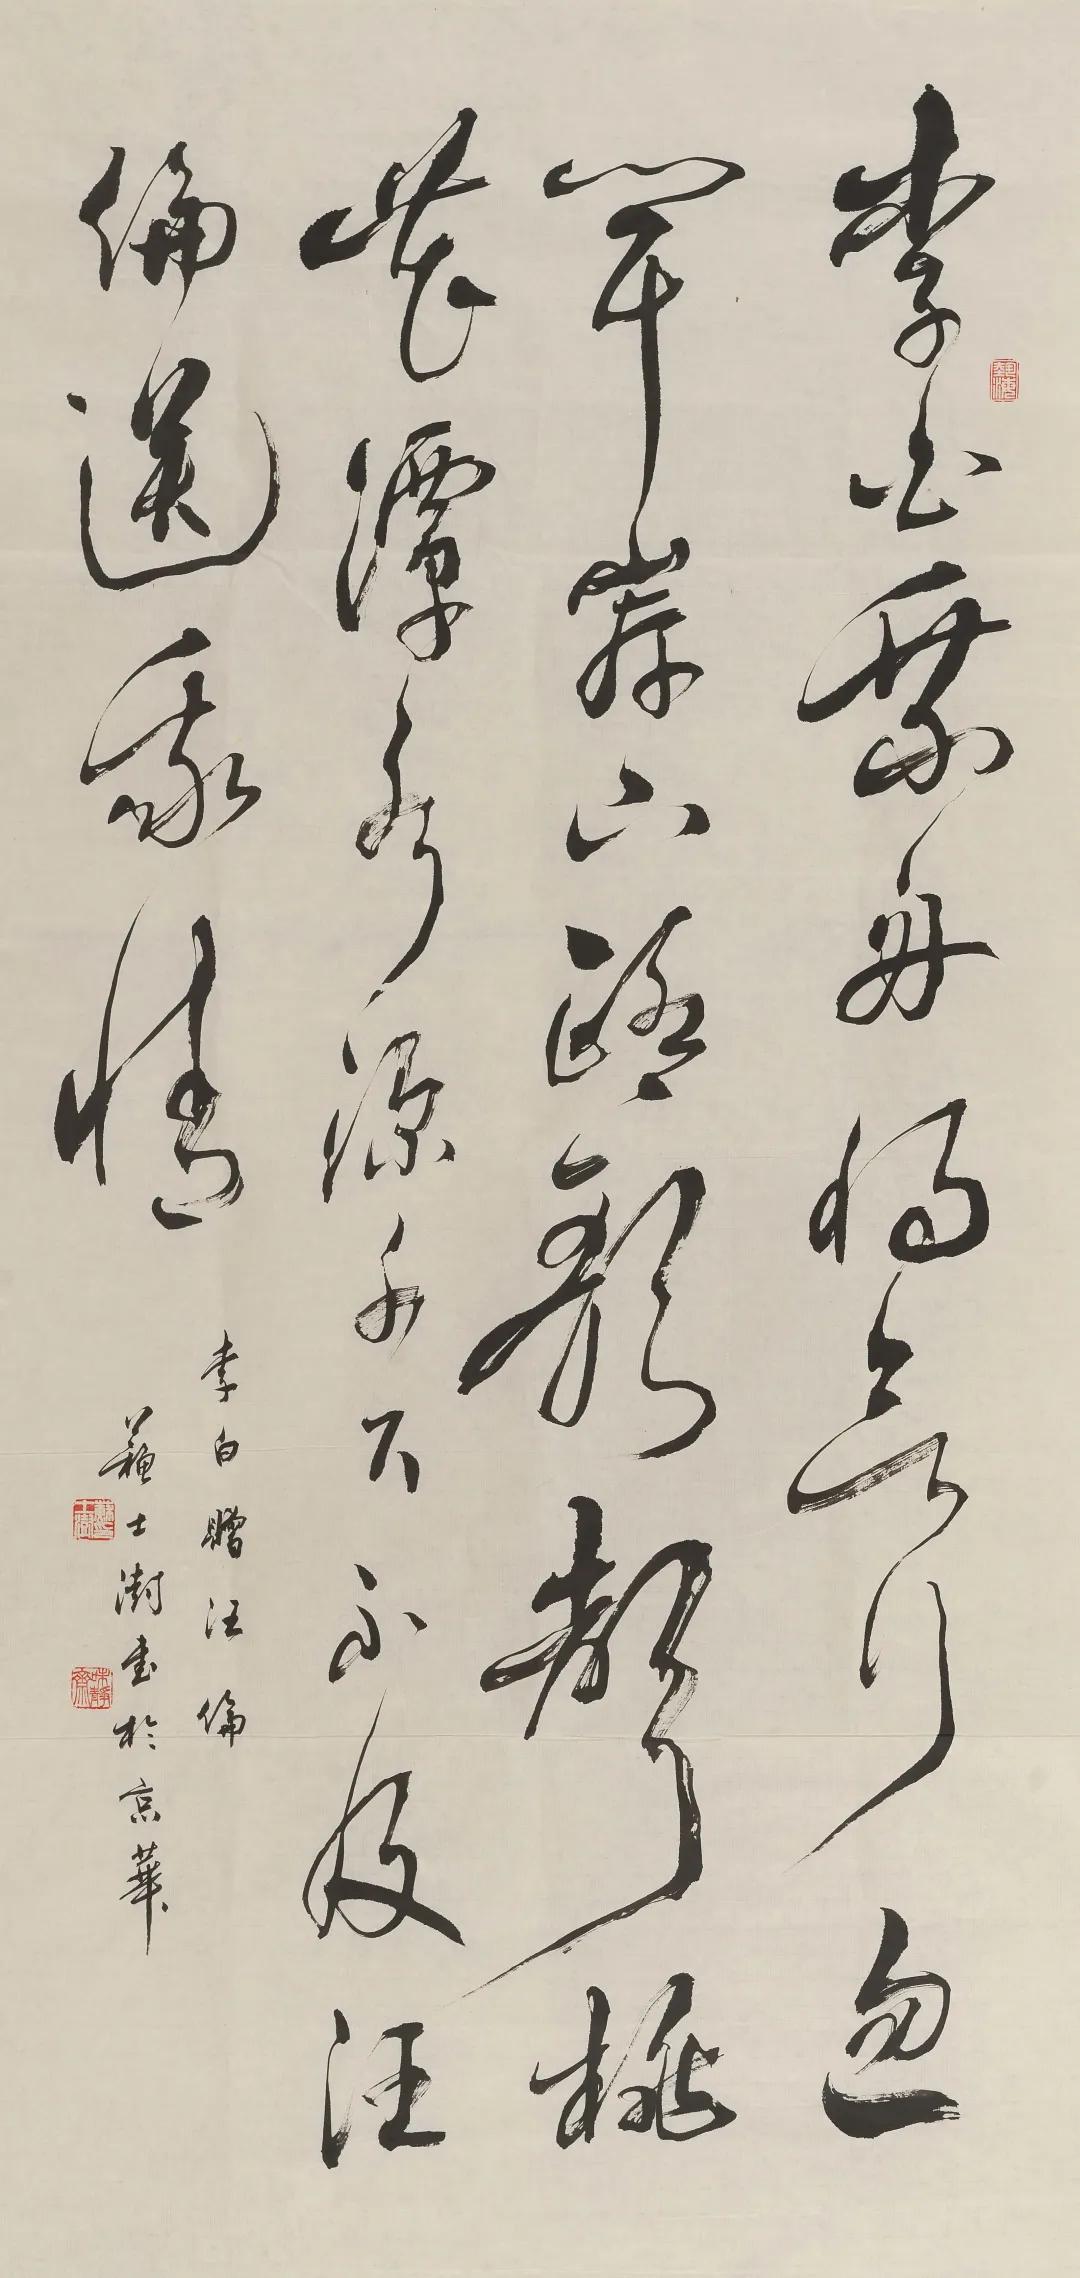 李白乘舟將欲行忽
聞岸上踏歌聲桃
花潭水深千尺不及汪
倫送我情
李白贈汪倫
蘇士澍書於京華
味靜齋